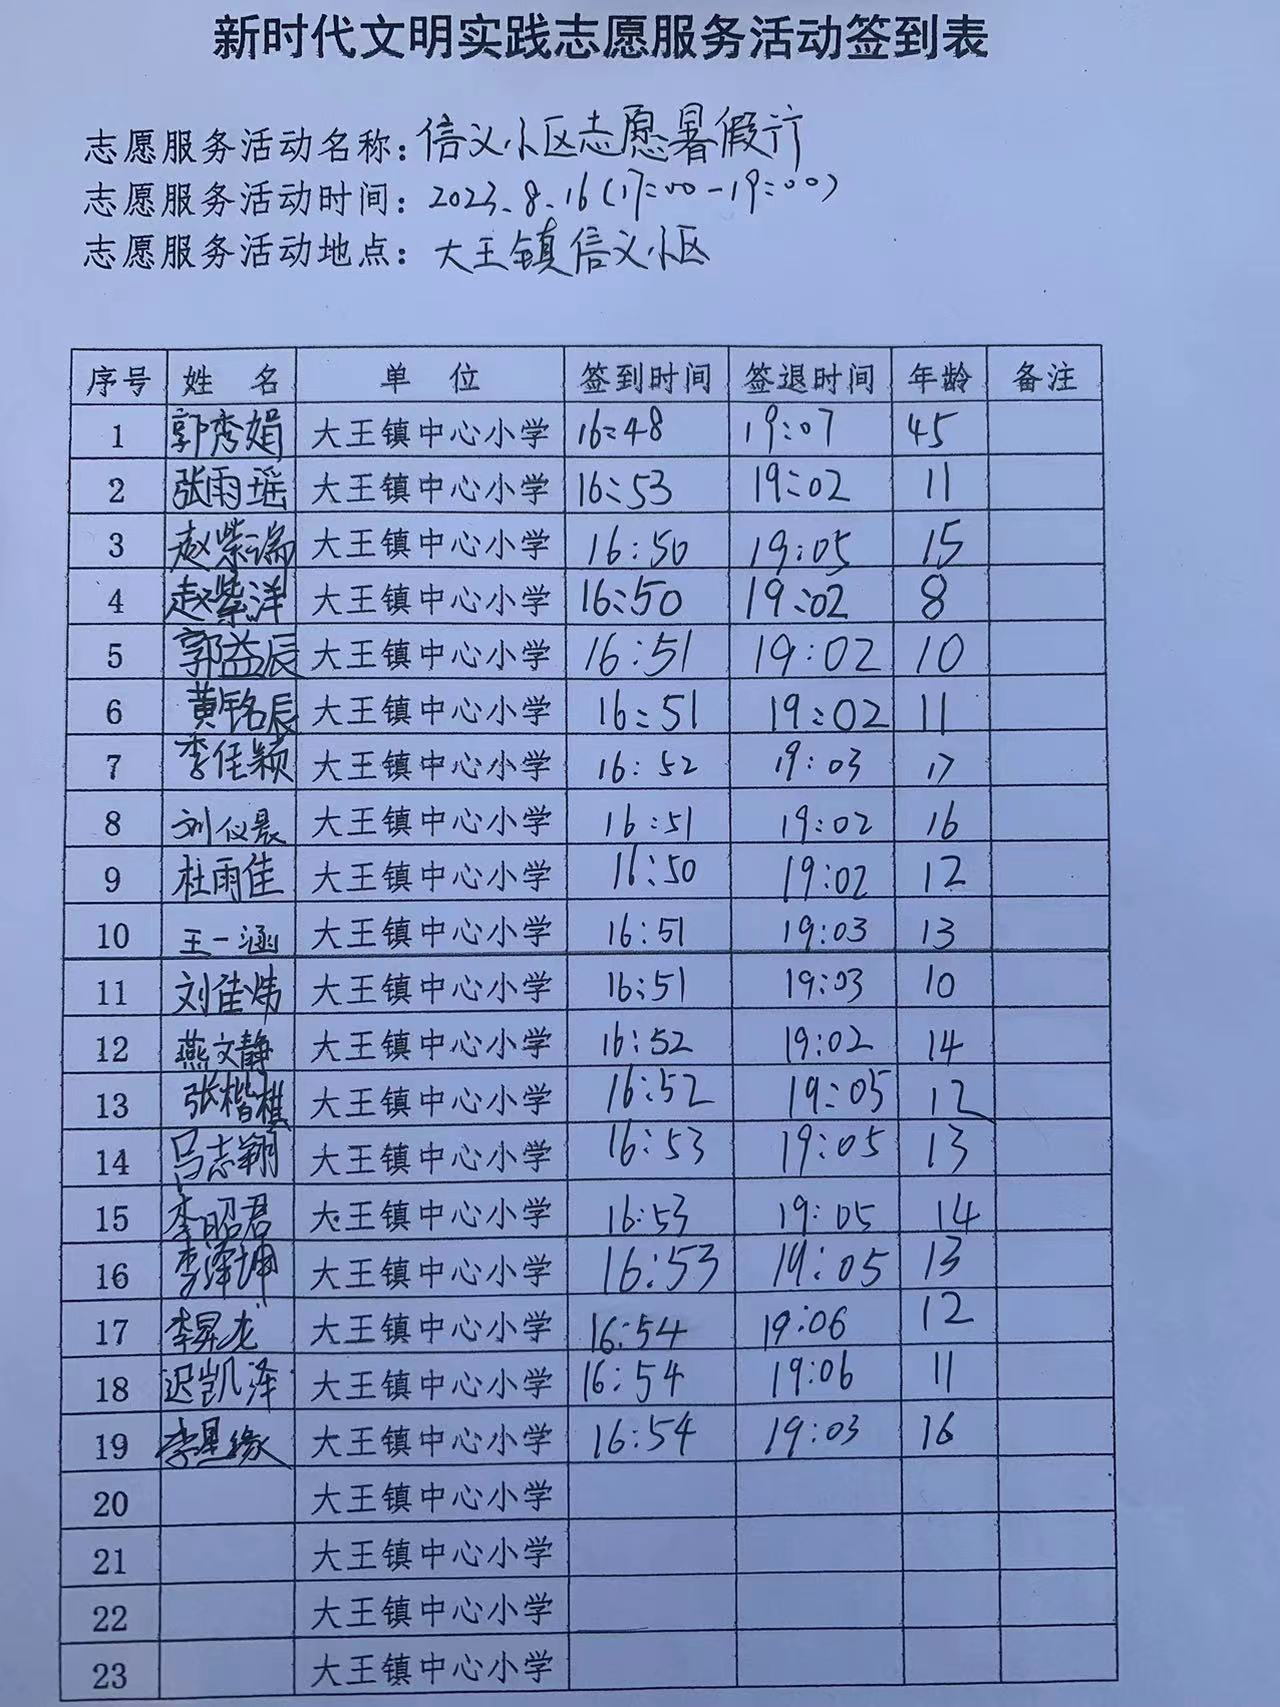 新时代文明实践志愿服务活动签到表
志愿服务活动名称：信义小区志愿暑假行
志愿服务活动时间：2023.8.16(17:00-19:00)
志愿服务活动地点：大王镇信义小区
序号 姓 名 单 位 签到时间 签退时间 年龄 备注
1 郭秀娟 大王镇中心小学 16:48 19:07 45
2 张雨瑶 大王镇中心小学 16:53 19:02 11
3 赵紫端 大王镇中心小学 16:50 19:05 15
4 赵紫洋 大王镇中心小学 16:50 19:02 8
5 郭益辰 大王镇中心小学 16:51 19:02 10
6 黄铭辰 大王镇中心小学 16:51 19:02 11
7 李佳颖 大王镇中心小学 16:52 19:03
8 刘仪晨 大王镇中心小学 16:51 19:02 16
9 杜雨佳 大王镇中心小学 16:50 19:02 12
10 王一涵 大王镇中心小学 16:51 19:03 13
11 刘佳炜 大王镇中心小学 16:51 19:03 10
12 燕文静 大王镇中心小学 16:52 19:02 14
13 张楷樵 大王镇中心小学 16:52 19:05 12
14 吕志翔 大王镇中心小学 16:53 19:05 13
15 李昭君 大王镇中心小学 16:53 19:05 14
16 李泽坤 大王镇中心小学 16:53 19:05 13
17 李昇龙 大王镇中心小学 16:54 19:06 12
18 迟凯泽 大王镇中心小学 16:54 19:06 11
19 李星缘 大王镇中心小学 16:54 19:03 16
20 大王镇中心小学
21 大王镇中心小学
22 大王镇中心小学
23 大王镇中心小学